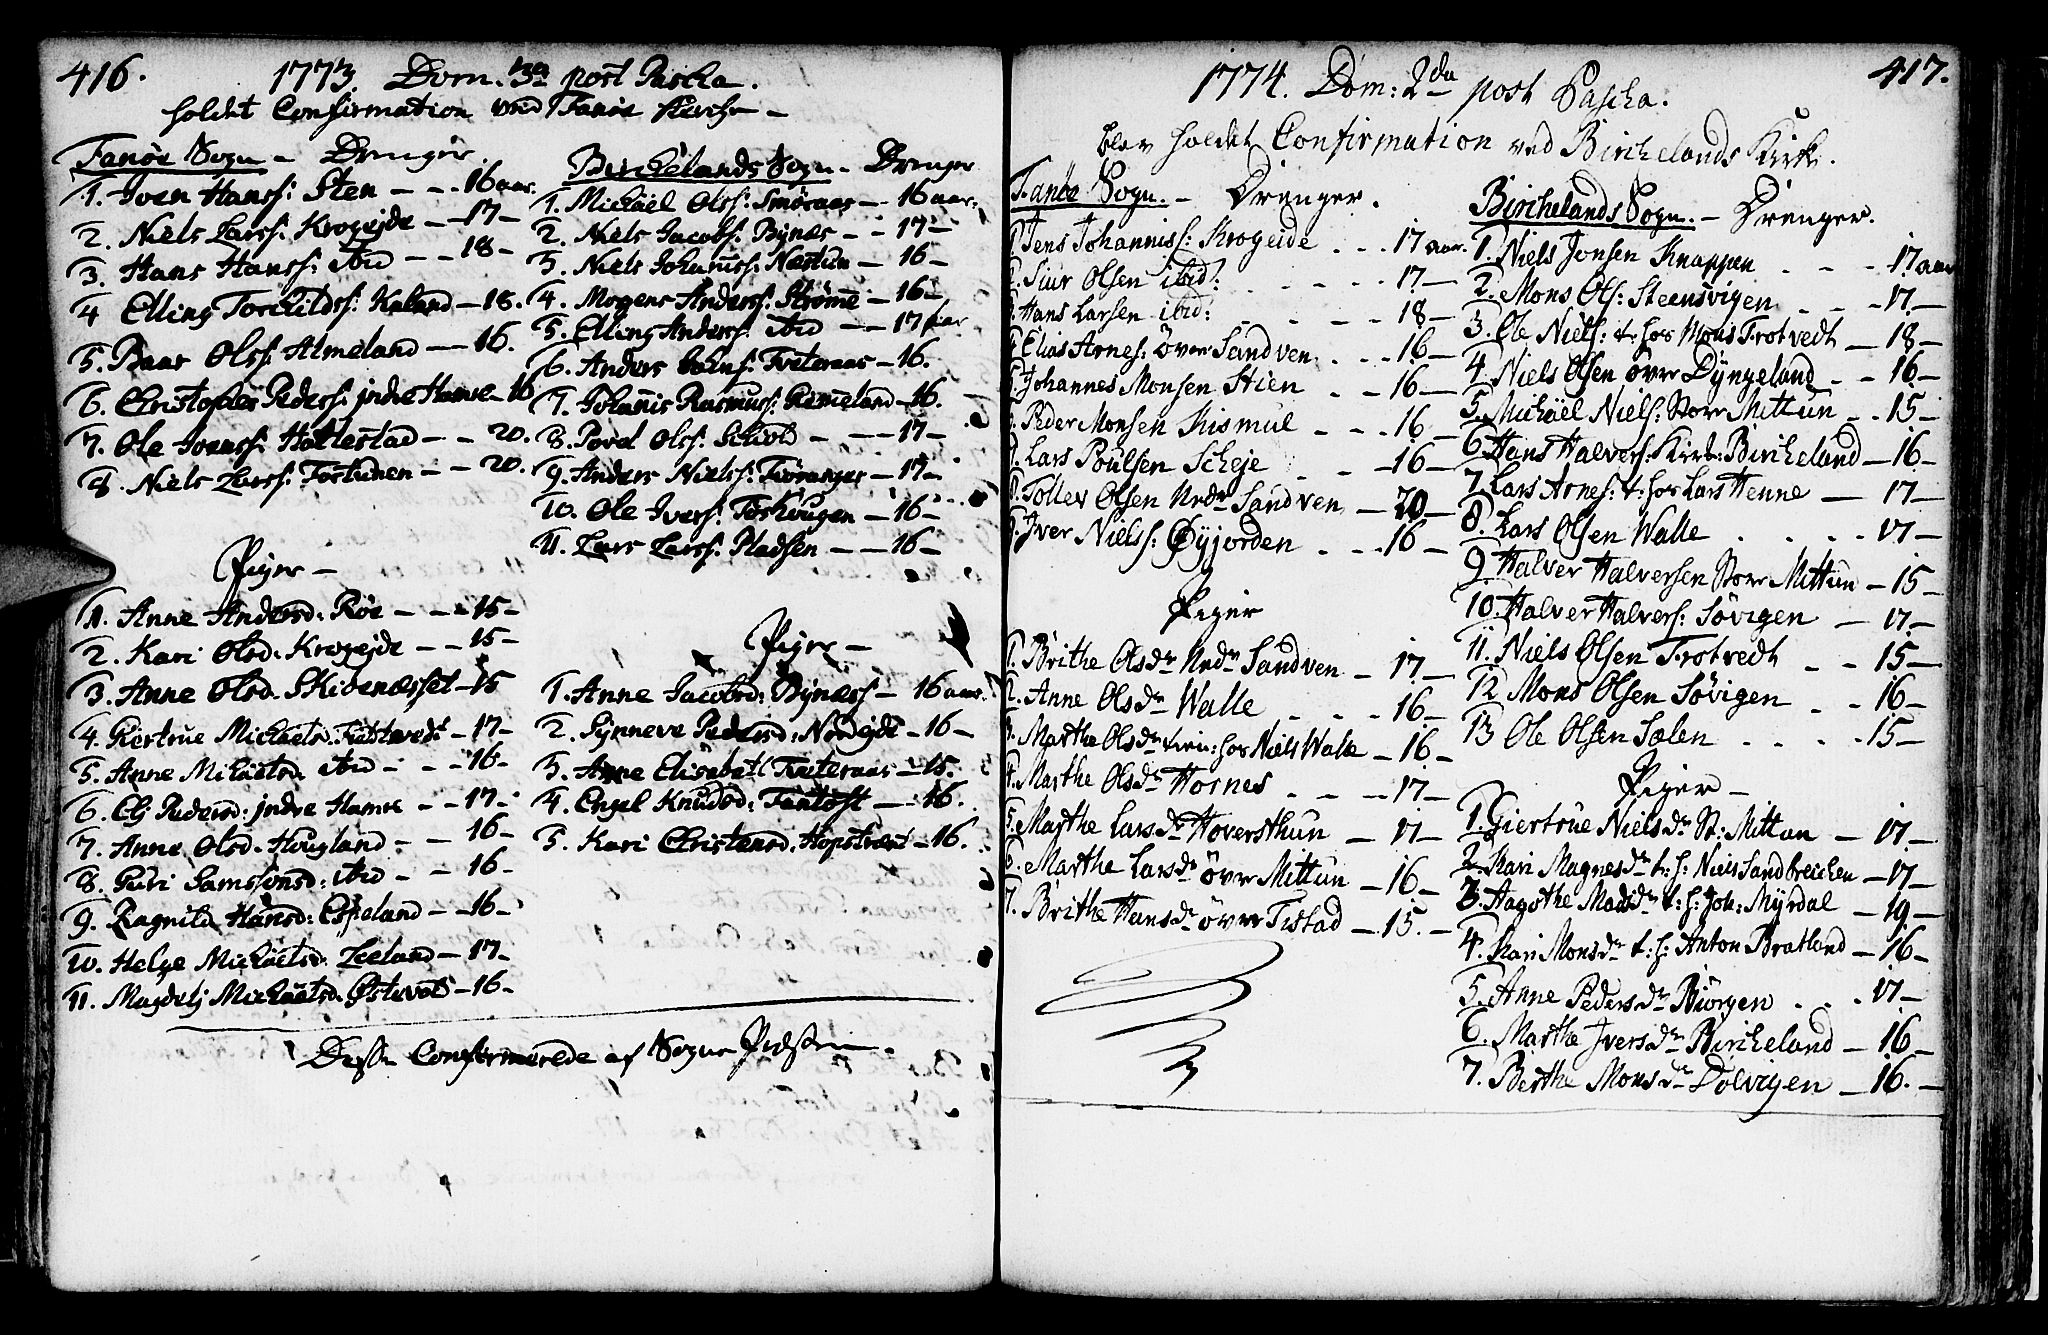 416.
1773. Dom. 3a post Pascha.
holdet Confirmation ved Fanøe Kirche —
Fanøe Sogn — Drenger.
1. Iven Hanss: Sten — 16 aar.
2. Niels Larss: Krogejde — 17 —
3. Hans Hanss: ibid — 18 —
4 Elling Torchildss: Kaland — 18.
5. Baar Olss: Almeland — 16.
6. Christopher Pederss: jndre Hamre — 16
7. Ole Ivarss: Hottestad — 20.
8. Niels Larss: Fortunen — 20.
Piger —
1. Anne Andersd: Røe — 15 —
2. Kari Olsd. Krogejde — 15 —
3. Anne Olsd. Skibenæsset — 15
4. Giertrue Michaelsd. Tvedtvedt — 17 —
5. Anne Michaelsd. ibid — 16 —
6. Elj Pedersd: jndre Hamre — 17 —
7. Anne Olsd. Hougland — 16 —
8. Guri Samssonsd: ibid — 16 —
9. Ragnild Hansd: Espeland — 16 —
10. Helge Michaelsd. Leeland — 17 —
11. Magdelj Michaelsd. Østevold — 16 —
Birckelands Sogn — Drenger
1. Michael Olss: Smøraas — 16 aar.
2. Niels Jacobs: Bynæs — 17 —
3. Niels Johannss: Næstun — 16 —
4. Mogens Anderss: Strømme — 16 —
5. Elling Anderss: ibid — 17 aar
6. Anders Johnss: Treteraas — 16.
7. Johannis Rasmuss: Remeland — 16.
8. Povel Olss: Schold — 17 —
9. Anders Nielss: Fiøranger — 17 —
10. Ole Ivers: Torshougen — 16 —
11. Lars Larss: Pladsen — 16 —
Piger —
1. Anne Jacobsd: Bynæss — 16 aar.
2. Synneve Pedersd: Nordejde — 16 —
3. Anne Elisabeth Treteraas — 15.
4. Engel Knudsd: Fantoft — 16.
5. Kari Christensd. Hopstræt — 16.
Disse Confirmerede af Sogne Præsten.
417.
1774. Dom: 2da post Pascha.
blev holdet Confirmation ved Birchelands Kirke.
Fanøe Sogn. — Drenger.
1. Jens Johanniss: Krogeide 17 aar.
2. Siur Olsen ibid: 17 —
3. Hans Larsen ibid: 18 —
4. Elias Arnes: øvre Sandven 16 —
5. Johannes Monsen Stien 16 —
6. Peder Monsen Kismul 16 —
7. Lars Poulsen Scheje — 16 —
8. Tollev Olsen Nedr Sandven — 20 —
9. Jver Nielss: Øyjorden 16 —
Piger
1. Brithe Olsdr Nedr Sandven — 17 —
2. Anne Olsdr Walle 16 —
3. Marthe Olsdr tien: hos Niels Walle — 16 —
4. Marthe Olsdr Hornes — 17 —
5. Marthe Larsdr Hoversthun — 17 —
6. Marthe Larsdr øvre Mittun — 16 —
7. Brithe Hansdr øvre Tistad — 15. —
Birchelands Sogn. — Drenger.
1. Niels Jonsen Knappen 17 aar
2. Mons Ols: Steensvigen 17. —
3. Ole Niels: t: hos Mons Trotvedt — 18 —
4. Niels Olsen øvre Dyngeland 16 —
5. Michael Niels: Store Mittun 15 —
6 Hans Halvers: Kirk: Bircheland — 16 —
7 Lars Arnes: t: hos Lars Henne — 17 —
8. Lars Olsen Walle 17 —
9 Halver Halversen Store Mittun — 15 —
10. Halver Halvers: Søvigen — 17. —
11. Niels Olsen Trotvedt 15 —
12 Mons Olsen Søvigen 16 —
13 Ole Olsen Sælen 15 —
Piger —
1. Giertrue Nielsdr St: Mittun — 17 —
2. Kari Magnesdr t: h: Niels Sandbreichen — 17 —
3. Aagothe Madsdr t: h: Joh: Myrdal — 19 —
4. Kari Monsdr t: h: Anton Bratland — 16 —
5. Anne Pedersdr Biørgen 17 —
6. Marthe Jversdr Bircheland — 16 —
7. Birthe Monsdr Dolvigen — 16. —